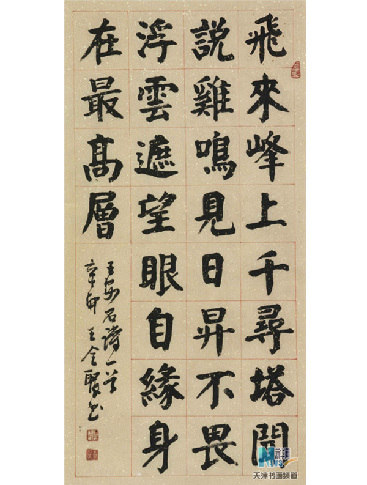 飛來峰上千尋塔聞
說雞鳴見日昇不畏
浮雲遮望眼自緣身
在最高層
王安石詩一首
辛卯王全聚书
天津书画频道